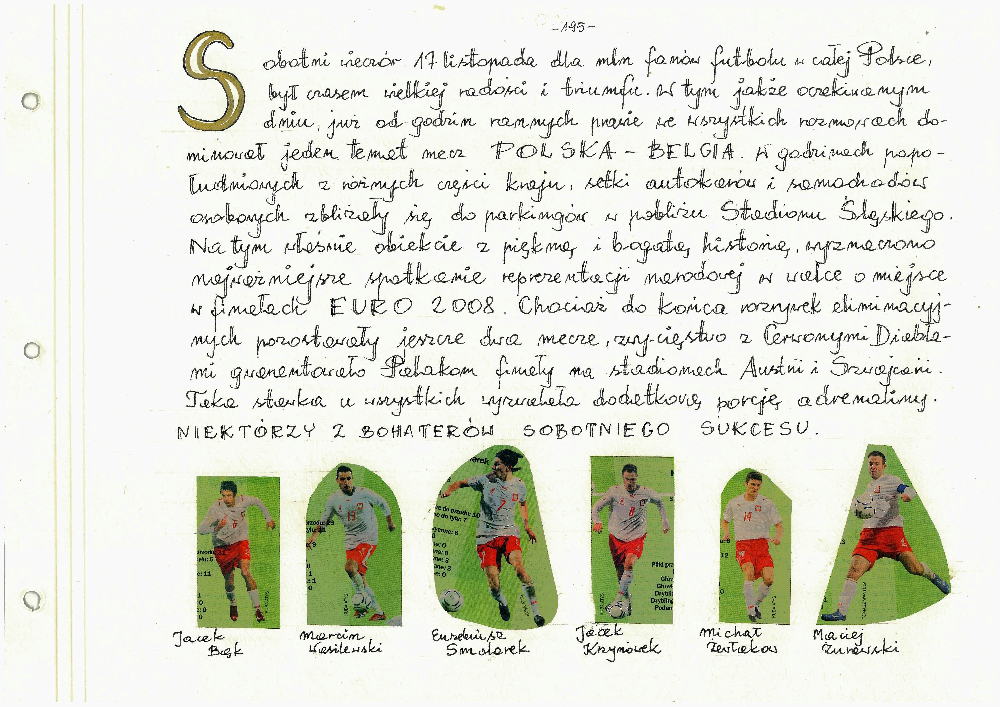 -195-
Sobotni wieczór 17 listopada dla mln fanów futbolu w całej Polsce,
był czasem wielkiej radości i triumfu. W tym jakże oczekiwanym
dniu, już od godzin rannych prawie we wszystkich rozmowach do-
minował jeden temat mecz POLSKA - BELGIA. W godzinach popo-
łudniowych z różnych części kraju, setki autokarów i samochodów
osobowych zbliżały się do parkingów w pobliżu Stadionu Śląskiego.
Na tym właśnie obiekcie z piękną i bogatą historią, wyznaczono
najważniejsze spotkanie reprezentacji narodowej w walce o miejsce
w finałach EURO 2008. Chociaż do końca rozgrywek eliminacyj-
nych pozostawały jeszcze dwa mecze, zwycięstwo z Czerwonymi Diabła-
mi gwarantowało Polakom finały na stadionach Austrii i Szwajcarii.
Taka stawka u wszystkich wyzwalała dodatkową porcję adrenaliny.
NIEKTÓRZY Z BOHATERÓW SOBOTNIEGO SUKCESU.
Jacek Bąk
Marcin Wasilewski
Euzebiusz Smolarek
Jacek Krzynówek
Michał Żewłakow
Maciej Żurawski